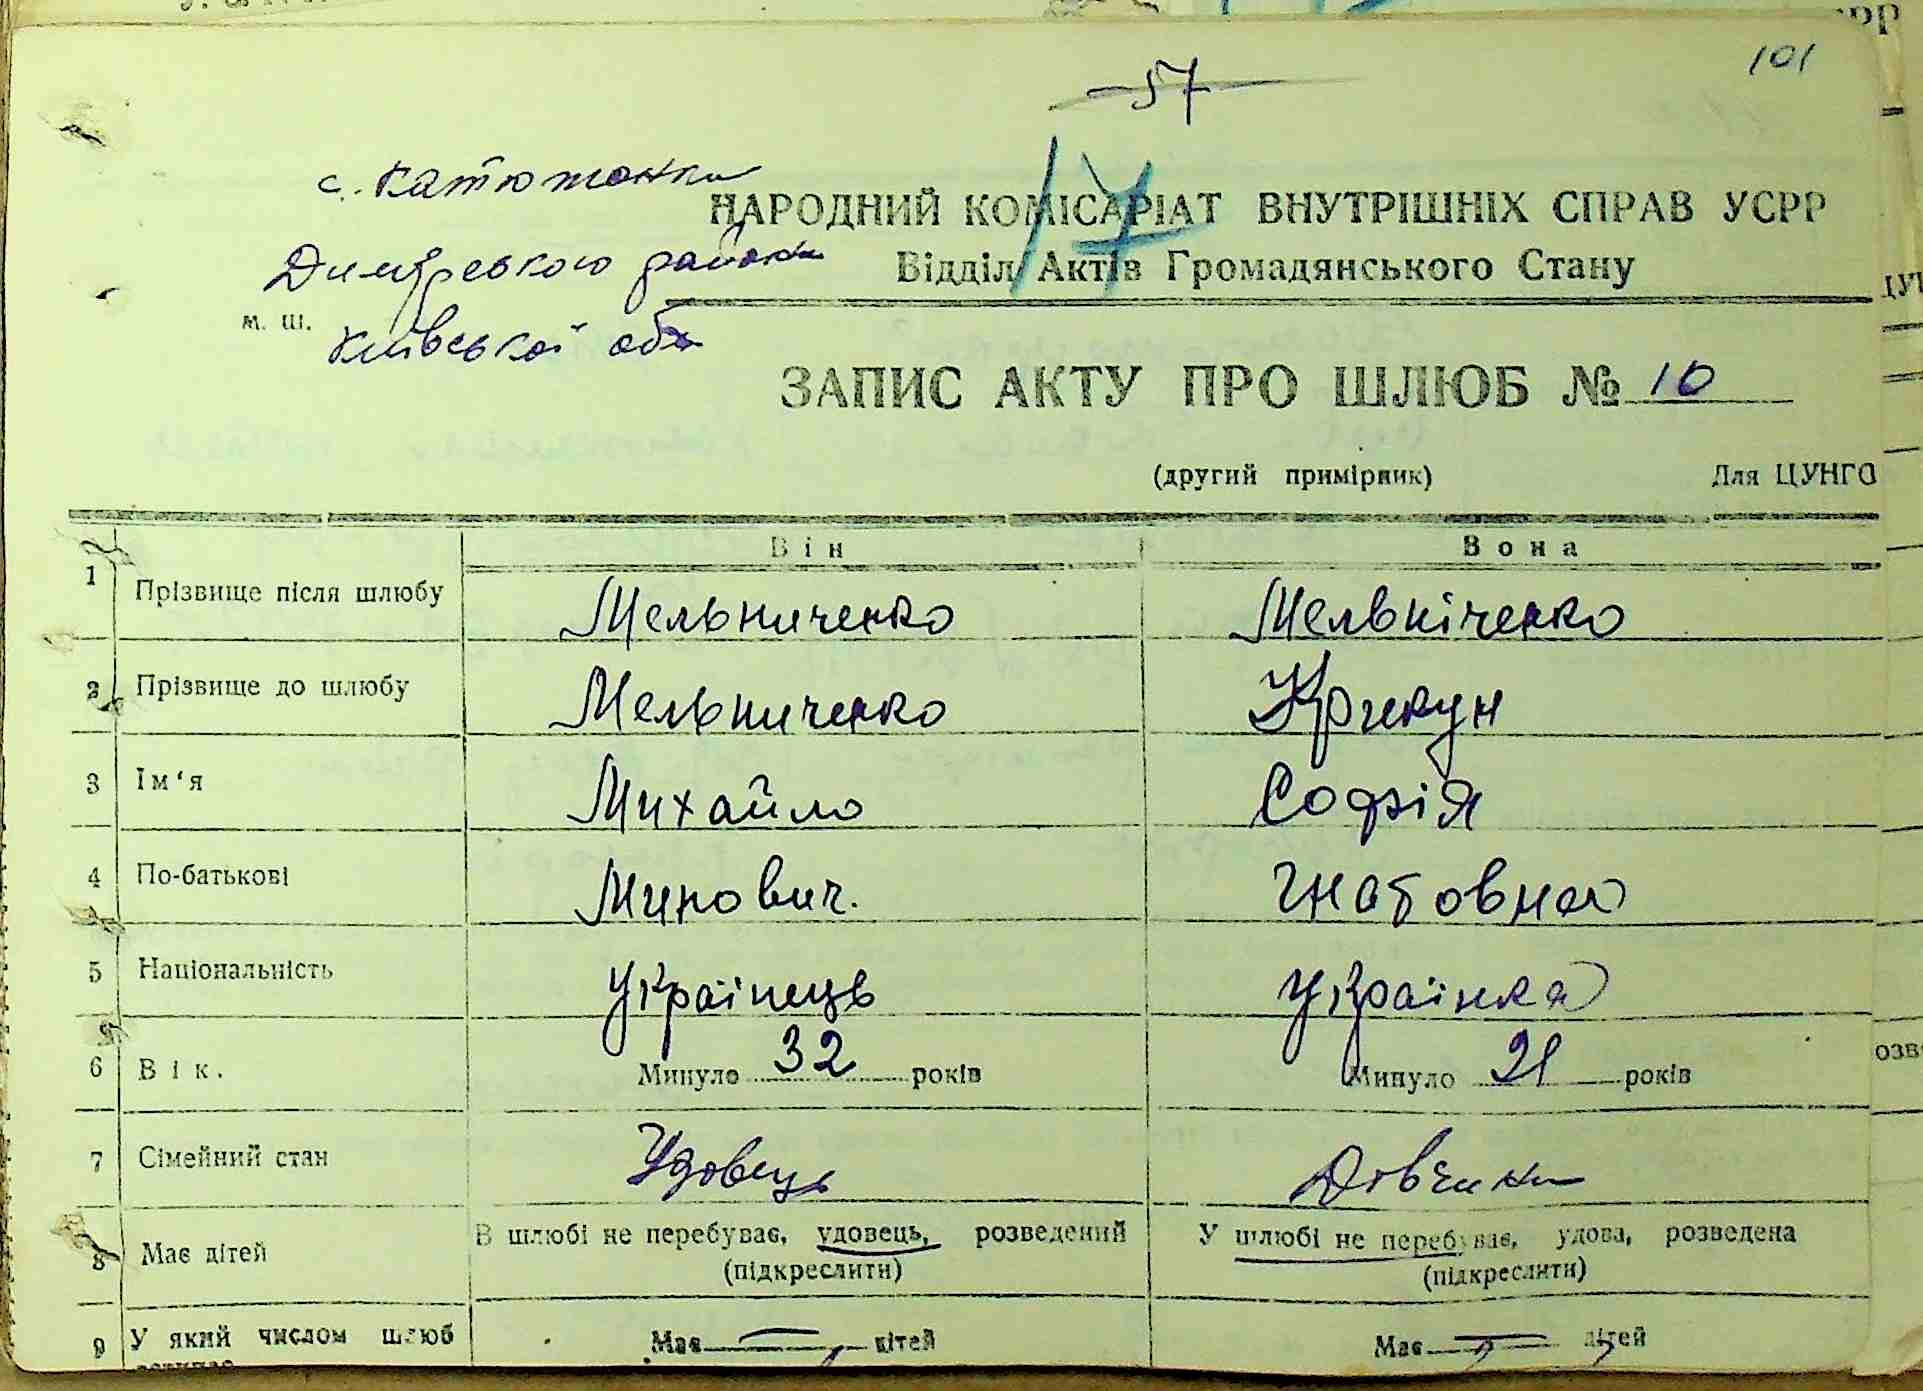 101
57
17
с. Катюжанка
НАРОДНИЙ КОМІСАРІАТ ВНУТРІШНІХ СПРАВ УСРР
Димерського району
Відділ Актів Громадянського Стану
м. ш.
Київської обл
ЗАПИС АКТУ ПРО ШЛЮБ № 10
(другий примірник) Для ЦУНГО
Він Вона
1 Прізвище після шлюбу Мельниченко Мельніченко
2 Прізвище до шлюбу Мельниченко Крикун
3 Ім‘я Михайло Софія
4 По-батькові Минович. Гнатовна
5 Національність Українець Українка
6 Вік. Минуло 32 років Минуло 21 років
7 Сімейний стан Удовець Дівчина
8 Має дітей В шлюбі не перебуває, удовець, розведений У шлюбі не перебуває, удова, розведена
(підкреслити) (підкреслити)
9 У який числом шлюб Має — дітей Має — дітей